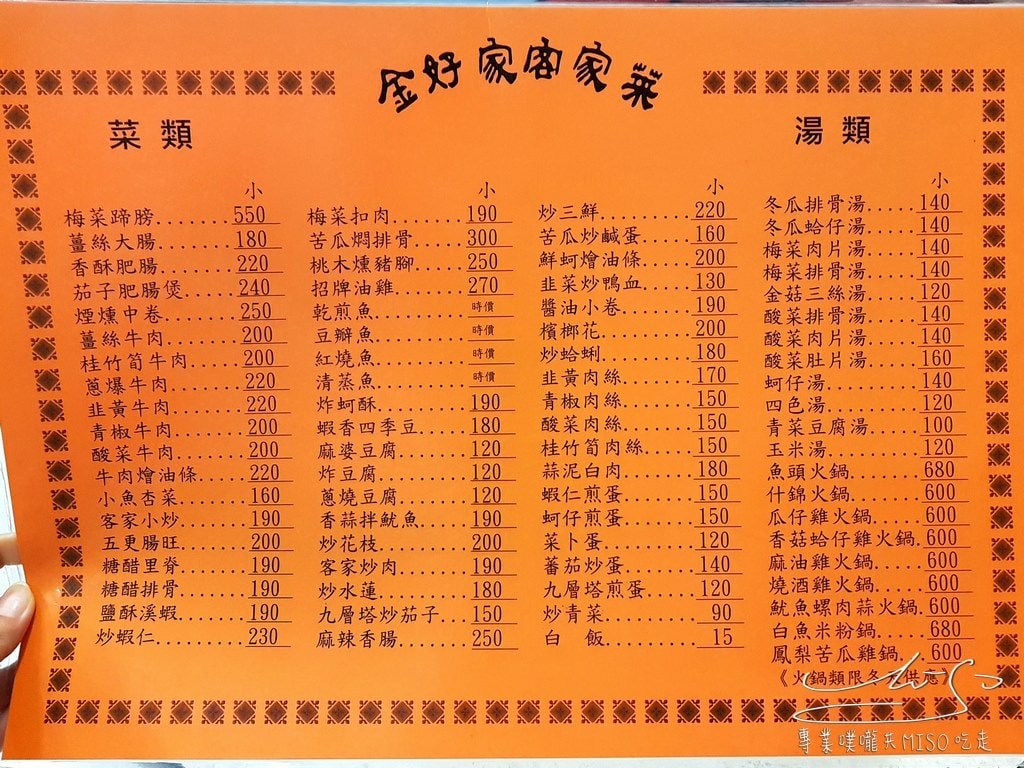 金好家客家菜
菜類
小
梅菜蹄膀.......550
薑絲大腸.......180
香酥肥腸.......220
茄子肥腸煲.....240
煙燻中卷.......250
薑絲牛肉.......200
桂竹筍牛肉.....200
蔥爆牛肉.......220
韭黃牛肉.......220
青椒牛肉.......200
酸菜牛肉.......200
牛肉燴油條.....220
小魚杏菜.......160
客家小炒.......190
五更腸旺.......200
糖醋里脊.......190
糖醋排骨.......190
鹽酥溪蝦.......190
炒蝦仁.........230
小
梅菜扣肉.......190
苦瓜燜排骨.....300
桃木燻豬腳.....250
招牌油雞.......270
乾煎魚.........時價
豆瓣魚.........時價
紅燒魚.........時價
清蒸魚.........時價
炸蚵酥.........190
蝦香四季豆.....180
麻婆豆腐.......120
炸豆腐.........120
蔥燒豆腐.......120
香蒜拌魷魚.....190
炒花枝.........200
客家炒肉.......190
炒水蓮.........180
九層塔炒茄子...150
麻辣香腸.......250
小
炒三鮮.........220
苦瓜炒鹹蛋.....160
鮮蚵燴油條.....200
韭菜炒鴨血.....130
醬油小卷.......190
檳榔花.........200
炒蛤蜊.........180
韭黃肉絲.......170
青椒肉絲.......150
酸菜肉絲.......150
桂竹筍肉絲.....150
蒜泥白肉.......180
蝦仁煎蛋.......150
蚵仔煎蛋.......150
菜卜蛋.........120
蕃茄炒蛋.......140
九層塔煎蛋.....120
炒青菜.........90
白 飯.........15
湯類
小
冬瓜排骨湯.....140
冬瓜蛤仔湯.....140
梅菜肉片湯.....140
梅菜排骨湯.....140
金菇三絲湯.....120
酸菜排骨湯.....140
酸菜肉片湯.....140
酸菜肚片湯.....160
蚵仔湯.........140
四色湯.........120
青菜豆腐湯.....100
玉米湯.........120
魚頭火鍋.......680
什錦火鍋.......600
瓜仔雞火鍋.....600
香菇蛤仔雞火鍋.600
麻油雞火鍋.....600
燒酒雞火鍋.....600
魷魚螺肉蒜火鍋.600
白魚米粉鍋.....680
鳳梨苦瓜雞鍋...600
《火鍋類限冬天供應》
專業噗嚨共MISO吃走